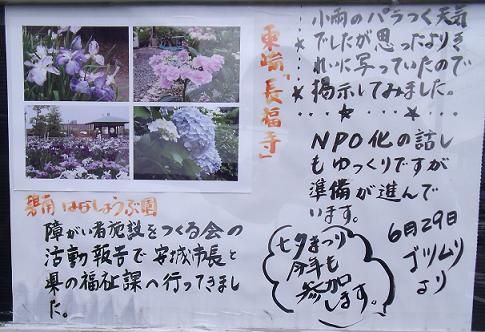 小雨のパラつく天気
でしたが思ったよりき
れいに写っていたので
掲示してみました。
東端「長福寺」
NPO化の話し
もゆっくりですが
準備が進んで
います。
碧南 はなしょうぶ園
障がい者施設をつくる会の
活動報告で安城市長と
県の福祉課へ行ってきまし
た。
七夕まつり
今年も
参加
します。
6月29日
ゴツムリ
より